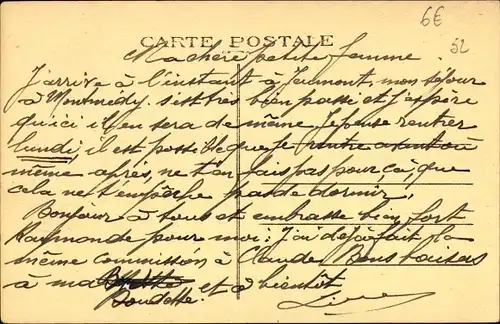 6€
52
CARTE POSTALE
Ma chère petite femme
J'arrive à l'instant à Jeumont, mon séjour
à Montmédy s'est très bien passé et j'espère
qu'ici il en sera de même. Je pense rentrer
lundi, il est possible que je rentre avant ou
même après, ne t'en fais pas pour ça, que
cela ne t'empêche pas de dormir.
Bonjour à tous et embrasse bien fort
Raymonde pour moi; J'ai déjà fait la
même commission à Claude. Bons baisers
à ma
Doudette. et à bientôt